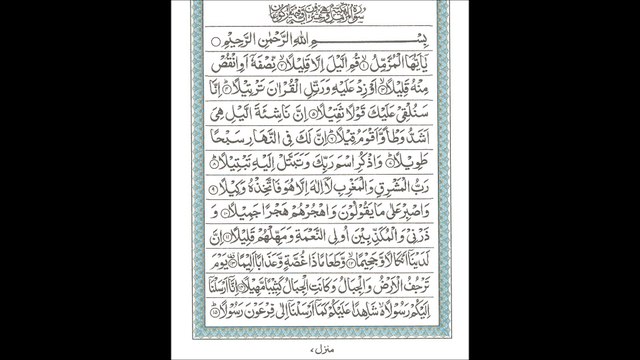 بِسْمِ اللّٰهِ الرَّحْمٰنِ الرَّحِيْمِ
يٰۤاَيُّهَا الْمُزَّمِّلُ ۙ﴿۱﴾ قُمِ الَّيْلَ اِلَّا قَلِيْلًا ۙ﴿۲﴾ نِّصْفَهٗۤ اَوِ انْقُصْ
مِنْهُ قَلِيْلًا ۙ﴿۳﴾ اَوْ زِدْ عَلَيْهِ وَرَتِّلِ الْقُرْاٰنَ تَرْتِيْلًا ؕ﴿۴﴾ اِنَّا
سَنُلْقِيْ عَلَيْكَ قَوْلًا ثَقِيْلًا ﴿۵﴾ اِنَّ نَاشِئَةَ الَّيْلِ هِيَ
اَشَدُّ وَطْاً وَّاَقْوَمُ قِيْلًا ؕ﴿۶﴾ اِنَّ لَكَ فِي النَّهَارِ سَبْحًا
طَوِيْلًا ؕ﴿۷﴾ وَاذْكُرِ اسْمَ رَبِّكَ وَتَبَتَّلْ اِلَيْهِ تَبْتِيْلًا ؕ﴿۸﴾
رَبُّ الْمَشْرِقِ وَالْمَغْرِبِ لَاۤ اِلٰهَ اِلَّا هُوَ فَاتَّخِذْهُ وَكِيْلًا ﴿۹﴾
وَاصْبِرْ عَلٰى مَا يَقُوْلُوْنَ وَاهْجُرْهُمْ هَجْرًا جَمِيْلًا ﴿۱۰﴾ وَ
ذَرْنِيْ وَالْمُكَذِّبِيْنَ اُولِي النَّعْمَةِ وَمَهِّلْهُمْ قَلِيْلًا ﴿۱۱﴾ اِنَّ
لَدَيْنَاۤ اَنْكَالًا وَّجَحِيْمًا ۙ﴿۱۲﴾ وَّطَعَامًا ذَا غُصَّةٍ وَّعَذَابًا اَلِيْمًا ﴿۱۳﴾ يَوْمَ
تَرْجُفُ الْاَرْضُ وَالْجِبَالُ وَكَانَتِ الْجِبَالُ كَثِيْبًا مَّهِيْلًا ﴿۱۴﴾ اِنَّاۤ اَرْسَلْنَاۤ
اِلَيْكُمْ رَسُوْلًا ۙ شَاهِدًا عَلَيْكُمْ كَمَاۤ اَرْسَلْنَاۤ اِلٰى فِرْعَوْنَ رَسُوْلًا ؕ﴿۱۵﴾
منزل ۷